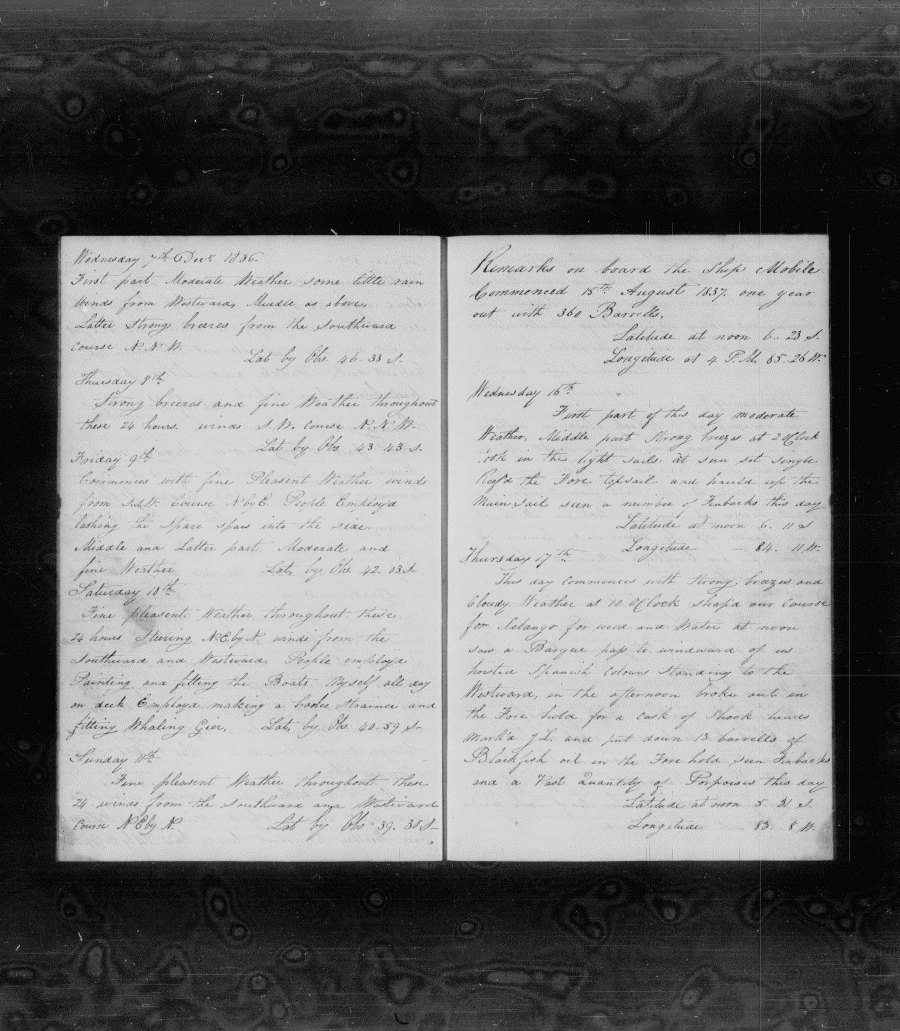 Wednesday 7th Decr 1836.
First part Moderate Weather some little rain
Winds from Westward, Middle as above,
Latter Strong breezes from the Southward
Course N.N.W.
Lat by Obs. 46 33 S.
Thursday 8th
Strong breezes and fine Weather throughout
these 24 hours. winds S.W. Course N.N.W.
Lat by Obs. 43. 43. S.
Friday 9th
Commences with fine Pleasent Weather winds
from S.&W. Course N by E. People Employd
lashing the spare spars into the
Middle and Latter part Moderate and
fine Weather
Lat, by Obs. 42. 03 S.
Saturday 10th
Fine pleasent Weather throughout these
24 hours Steering N.E by N. winds from the
Southward and Westward, People employd
Painting and fitting the Boats, Myself all day
on deck Employd making a Strainer and
fitting Whaling Geer.
Lat, by Obs. 40. 59 S.
Sunday 11th
Fine pleasent Weather throughout these
24 winds from the Southward and Westward
Course N.E by N.
Lat by Obs 39. 31 S.
Remarks on board the Ship Mobile
Commenced 15th August 1837. one year
out with 360 Barrells,
Latitude at noon 6.. 23 S.
Longitude at 4 P.M. 85. 26 W.
Wednesday 16th
First part of this day moderate
Weather, Middle part Strong breezes at 2 OClock
took in the light sails. at sun set single
Reefd the Fore topsail and hauld up the
Main sail seen a number of Finbacks this day
Latitude at noon 6. 11 S
Longitude 84. 11 W.
Thursday 17th
This day commences with Strong breezes and
Cloudy Weather at 10 OClock shapd our Course
for Selango for wood and Water at noon
saw a Barque pass to windward of us
hoisted Spanish Colours standing to the
Westward, in the afternoon broke out in
the Fore hold for a cask of Shook heads
Mark'd J.L. and put down 13 barrells of
Blackfish oil in the Fore hold, seen Finbacks
and a Vast Quantity of Porpoises this day
Latitude at noon 5. 31 S
Longitude 83. 8 W.